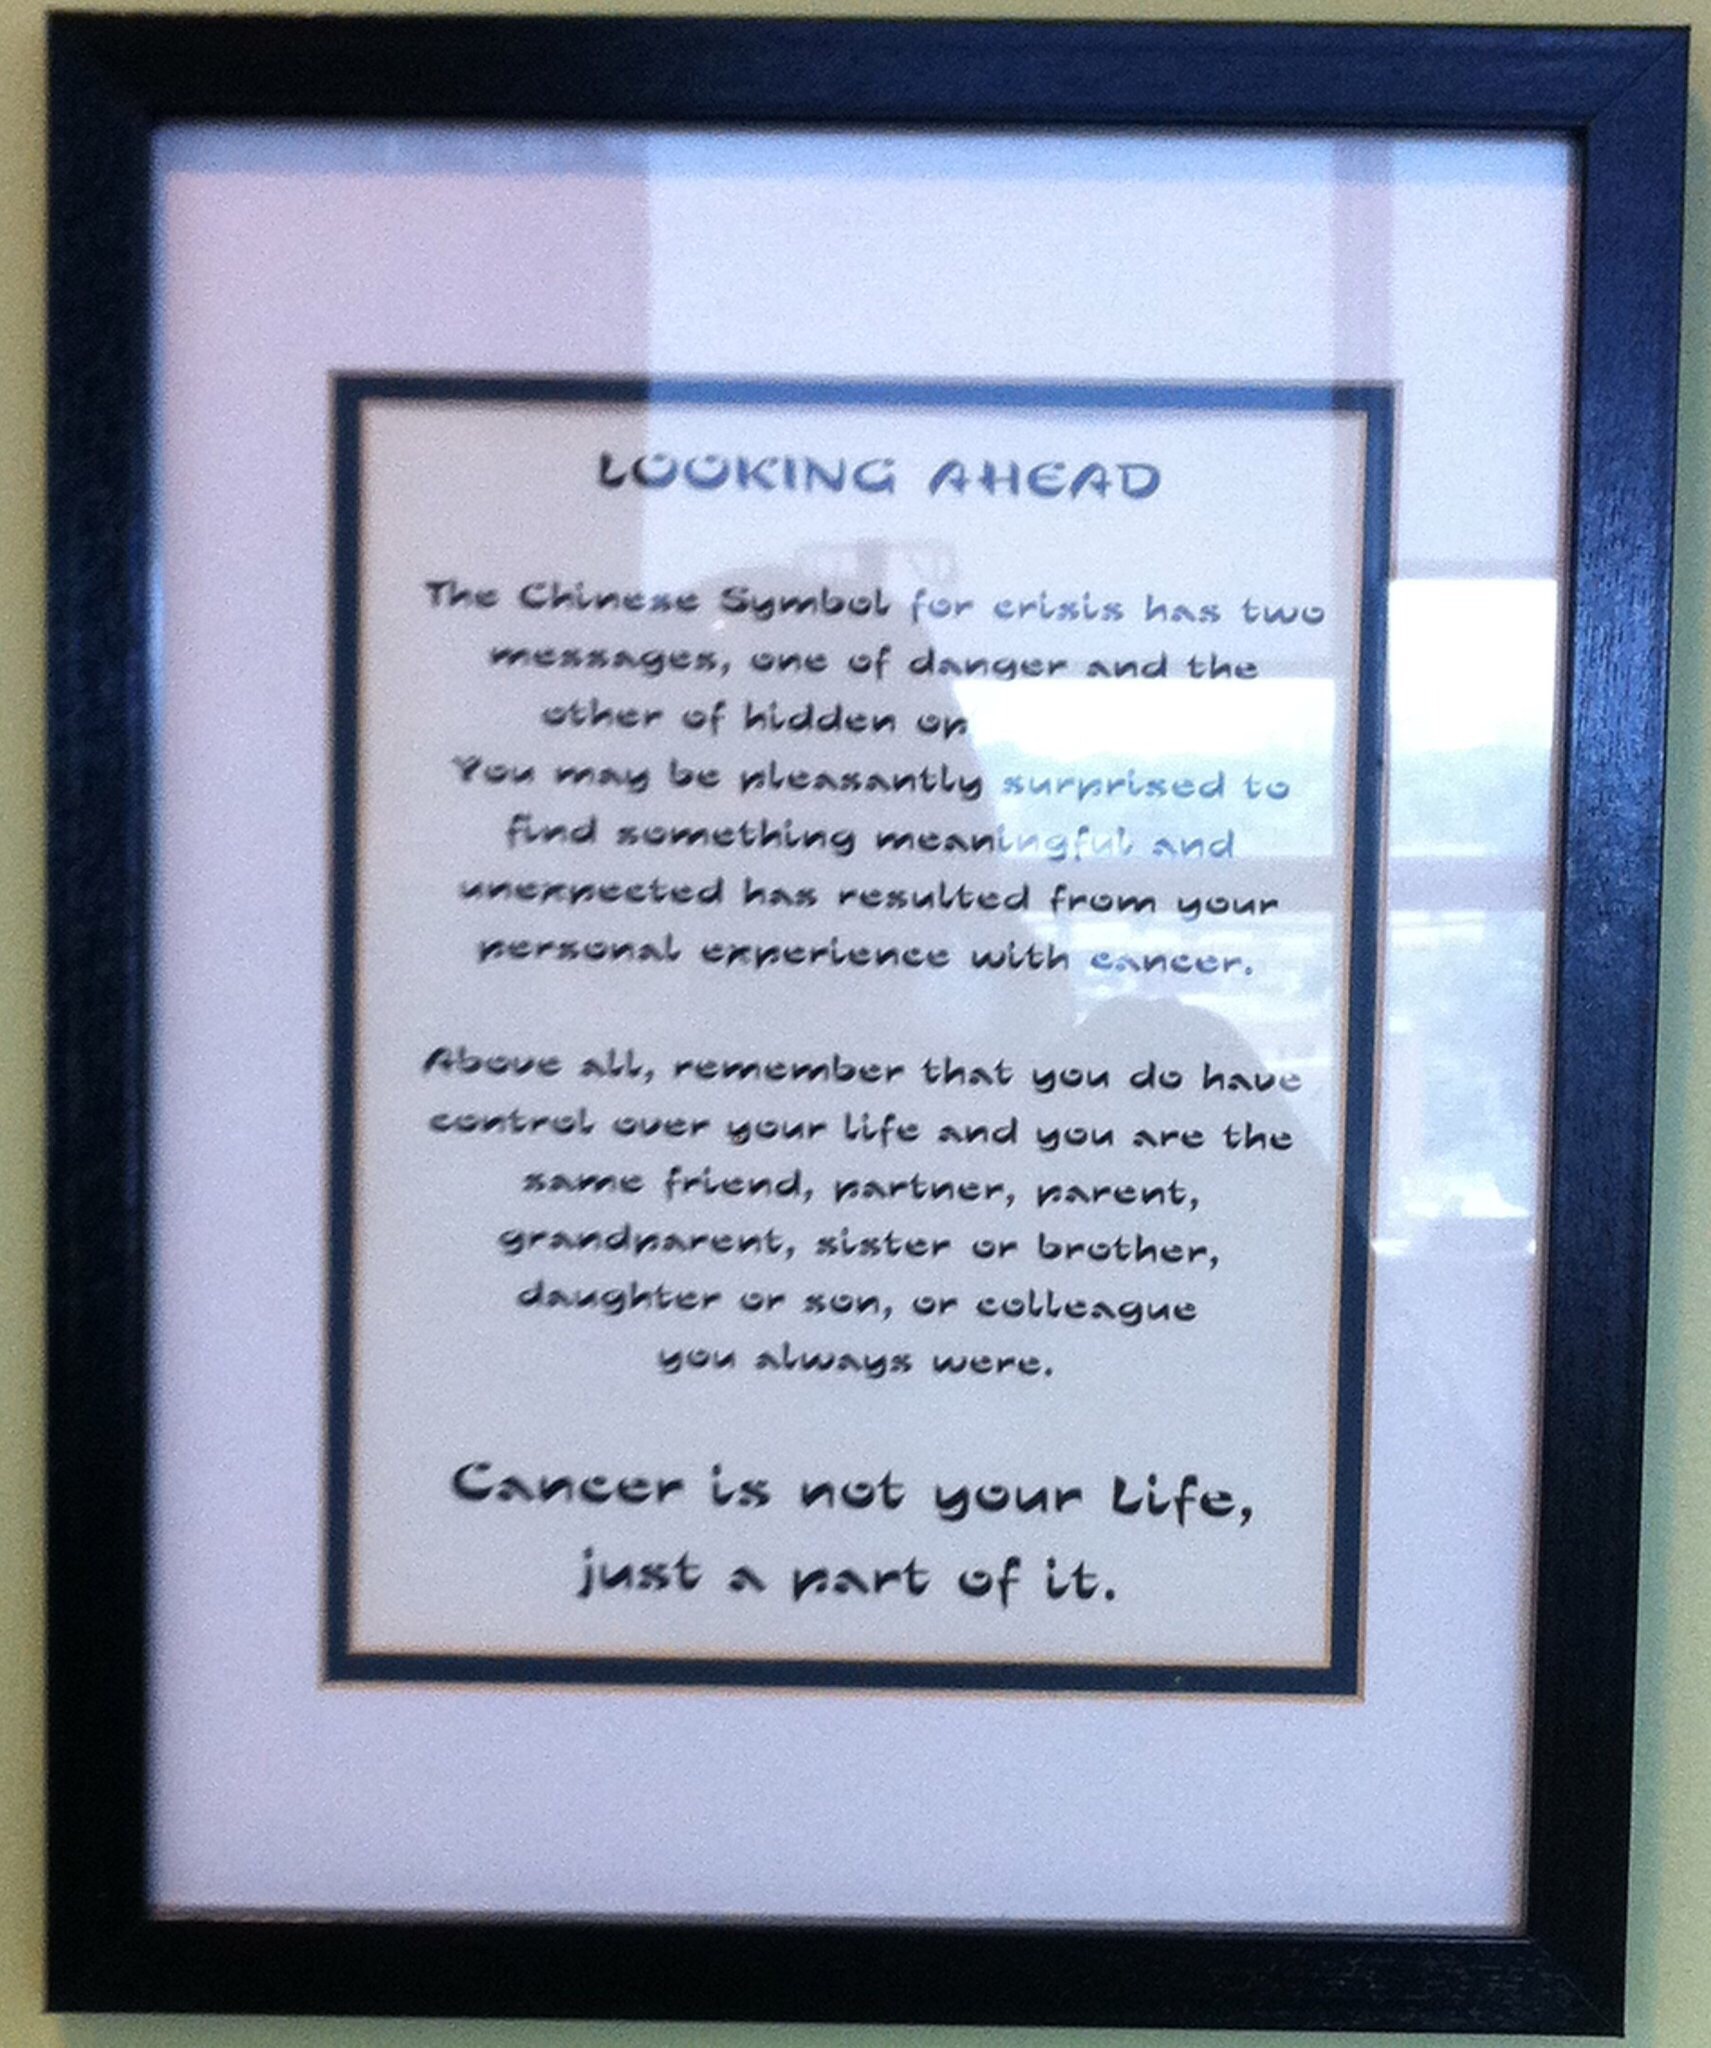 LOOKING AHEAD
The Chinese Symbol for crisis has two
messages, one of danger and the
other of hidden
You may be pleasantly surprised to
find something meaningful and
unexpected has resulted from your
personal experience with cancer.
Above all, remember that you do have
control over your life and you are the
same friend, partner, parent,
grandparent, sister or brother,
daughter or son, or colleague
you always were.
Cancer is not your Life,
just a part of it.